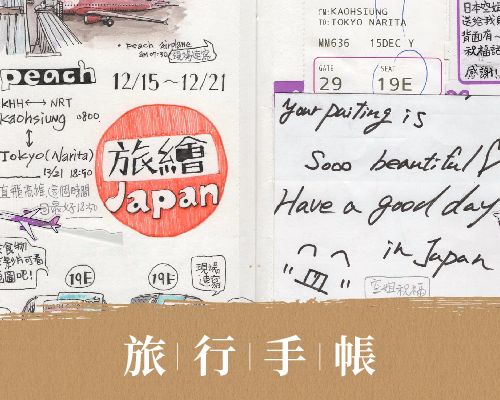 • peach airplane
現場速寫
peach
12/15～12/21
KHH↔NRT
Kaohsiung 0800
↕
Tokyo(Narita)
12/21 18:50
直飛高雄 這個時間
旅繪
Japan
19E
19E
現場
速寫
FM:KAOHSIUNG
TO:TOKYO NARITA
MM636 15DEC Y
GATE SEAT
29 19E
日本空姐
送給我的
背面有一
祝福
感謝!
Your paiting is
Sooo beautiful!
Have a good day
in Japan
空姐祝福
旅行手帳